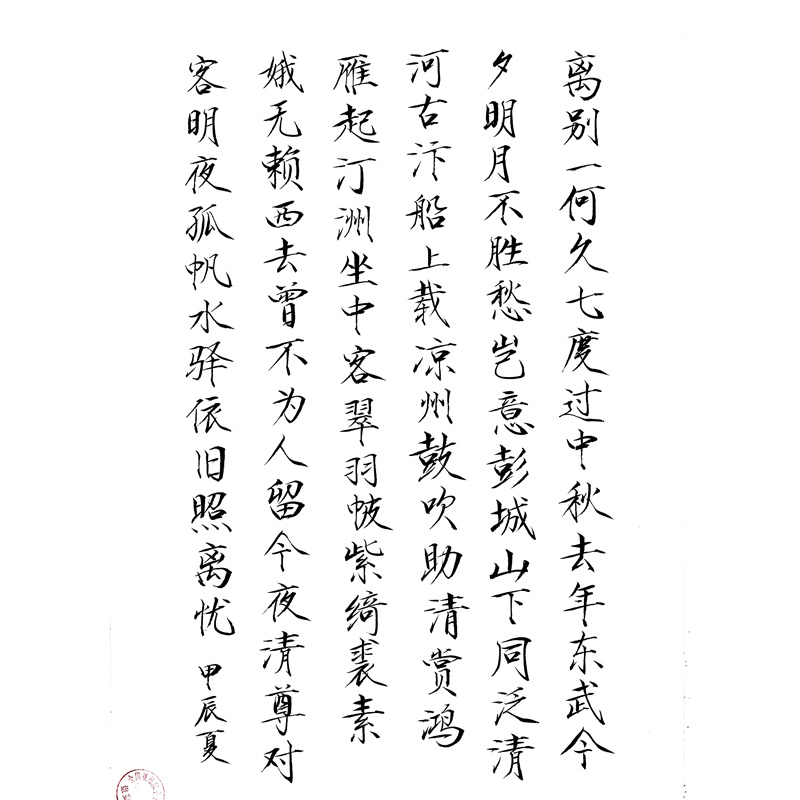 离别一何久七度过中秋去年东武今
夕明月不胜愁岂意彭城山下同泛清
河古汴船上载凉州鼓吹助清赏鸿
雁起汀洲坐中客翠羽帔紫绮裘素
娥无赖西去曾不为人留今夜清尊对
客明夜孤帆水驿依旧照离忧
甲辰夏